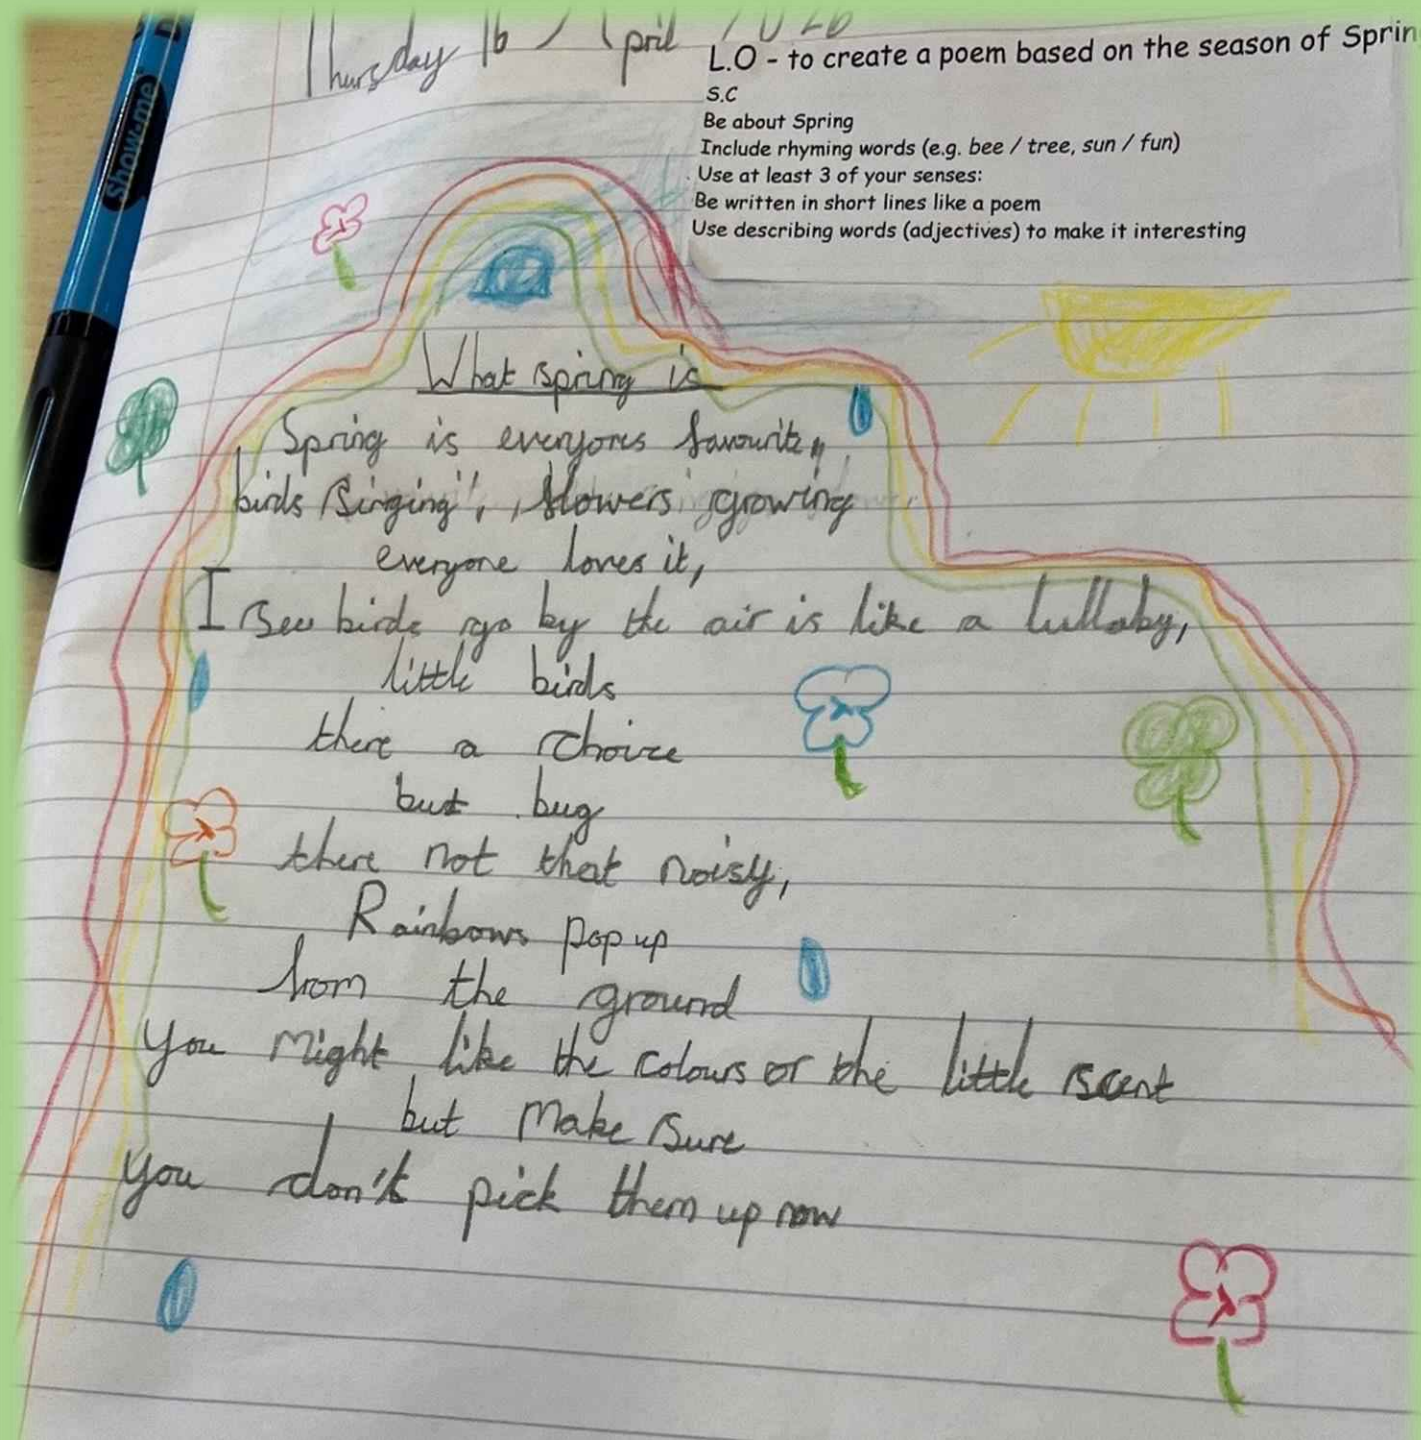 Thursday 16 April 2026
L.O - to create a poem based on the season of Sprin
S.C
Be about Spring
Include rhyming words (e.g. bee / tree, sun / fun)
Use at least 3 of your senses:
Be written in short lines like a poem
Use describing words (adjectives) to make it interesting
Show-me
What spring is
Spring is everyones favourite,,
birds "singing", flowers growing
everyone loves it,
I see birds go by the air is like a lullaby,
little birds
there a choice
but bug
there not that noisy,
Rainbows pop up
from the ground
You might like the colours or the little scent
but make sure
you don't pick them up now